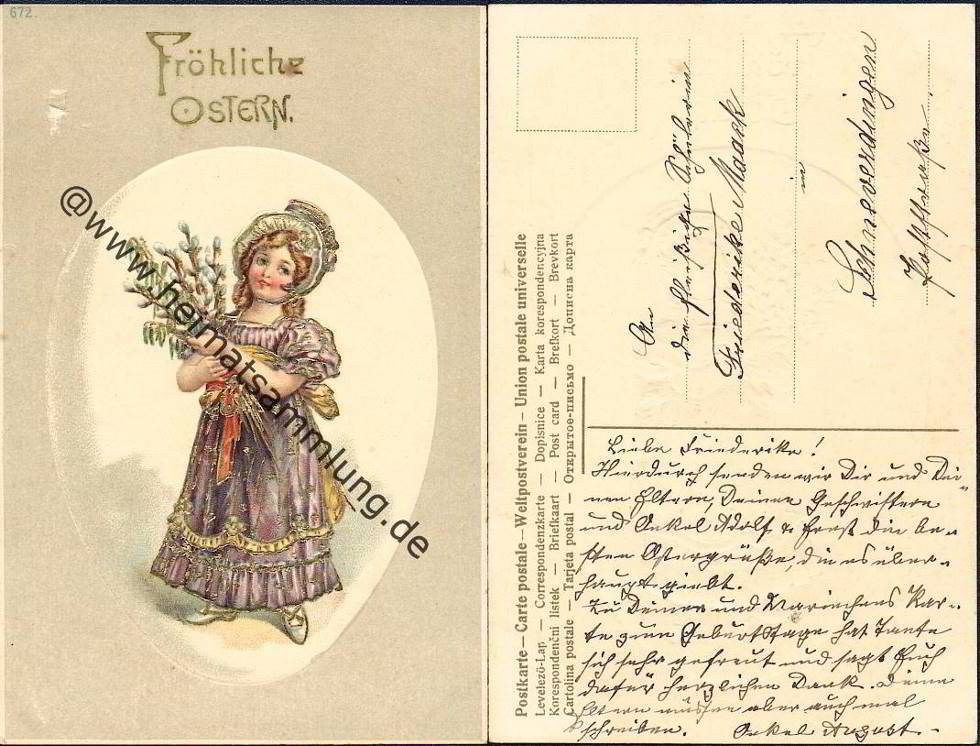 672.
Fröhliche
OSTERN.
@www.heimatsammlung.de
Postkarte — Carte postale — Weltpostverein — Union postale universelle
Levelező-Lap — Correspondenzkarte — Dopisnice — Karta korespondencyjna
Korespondenční listek — Briefkaart — Post card — Brefkort — Brevkort
Cartolina postale — Tarjeta postal — Открытое-письмо — Дописна карта
An
die fleißige Schülerin
Friederike Maack
in
Schneverdingen
Poststraße.
Liebe Friederike!
Hierdurch senden wir Dir und Dei-
nen Eltern, Deinen Geschwistern
und Onkel Adolf & Ernst die be-
sten Ostergrüße, die es über-
haupt giebt.
Zu Deiner und Mariechens Kar-
te zum Geburtstage hat Tante
sich sehr gefreut und sagt Euch
dafür herzlichen Dank. Deine
Eltern müssen aber auch mal
schreiben. Onkel August.